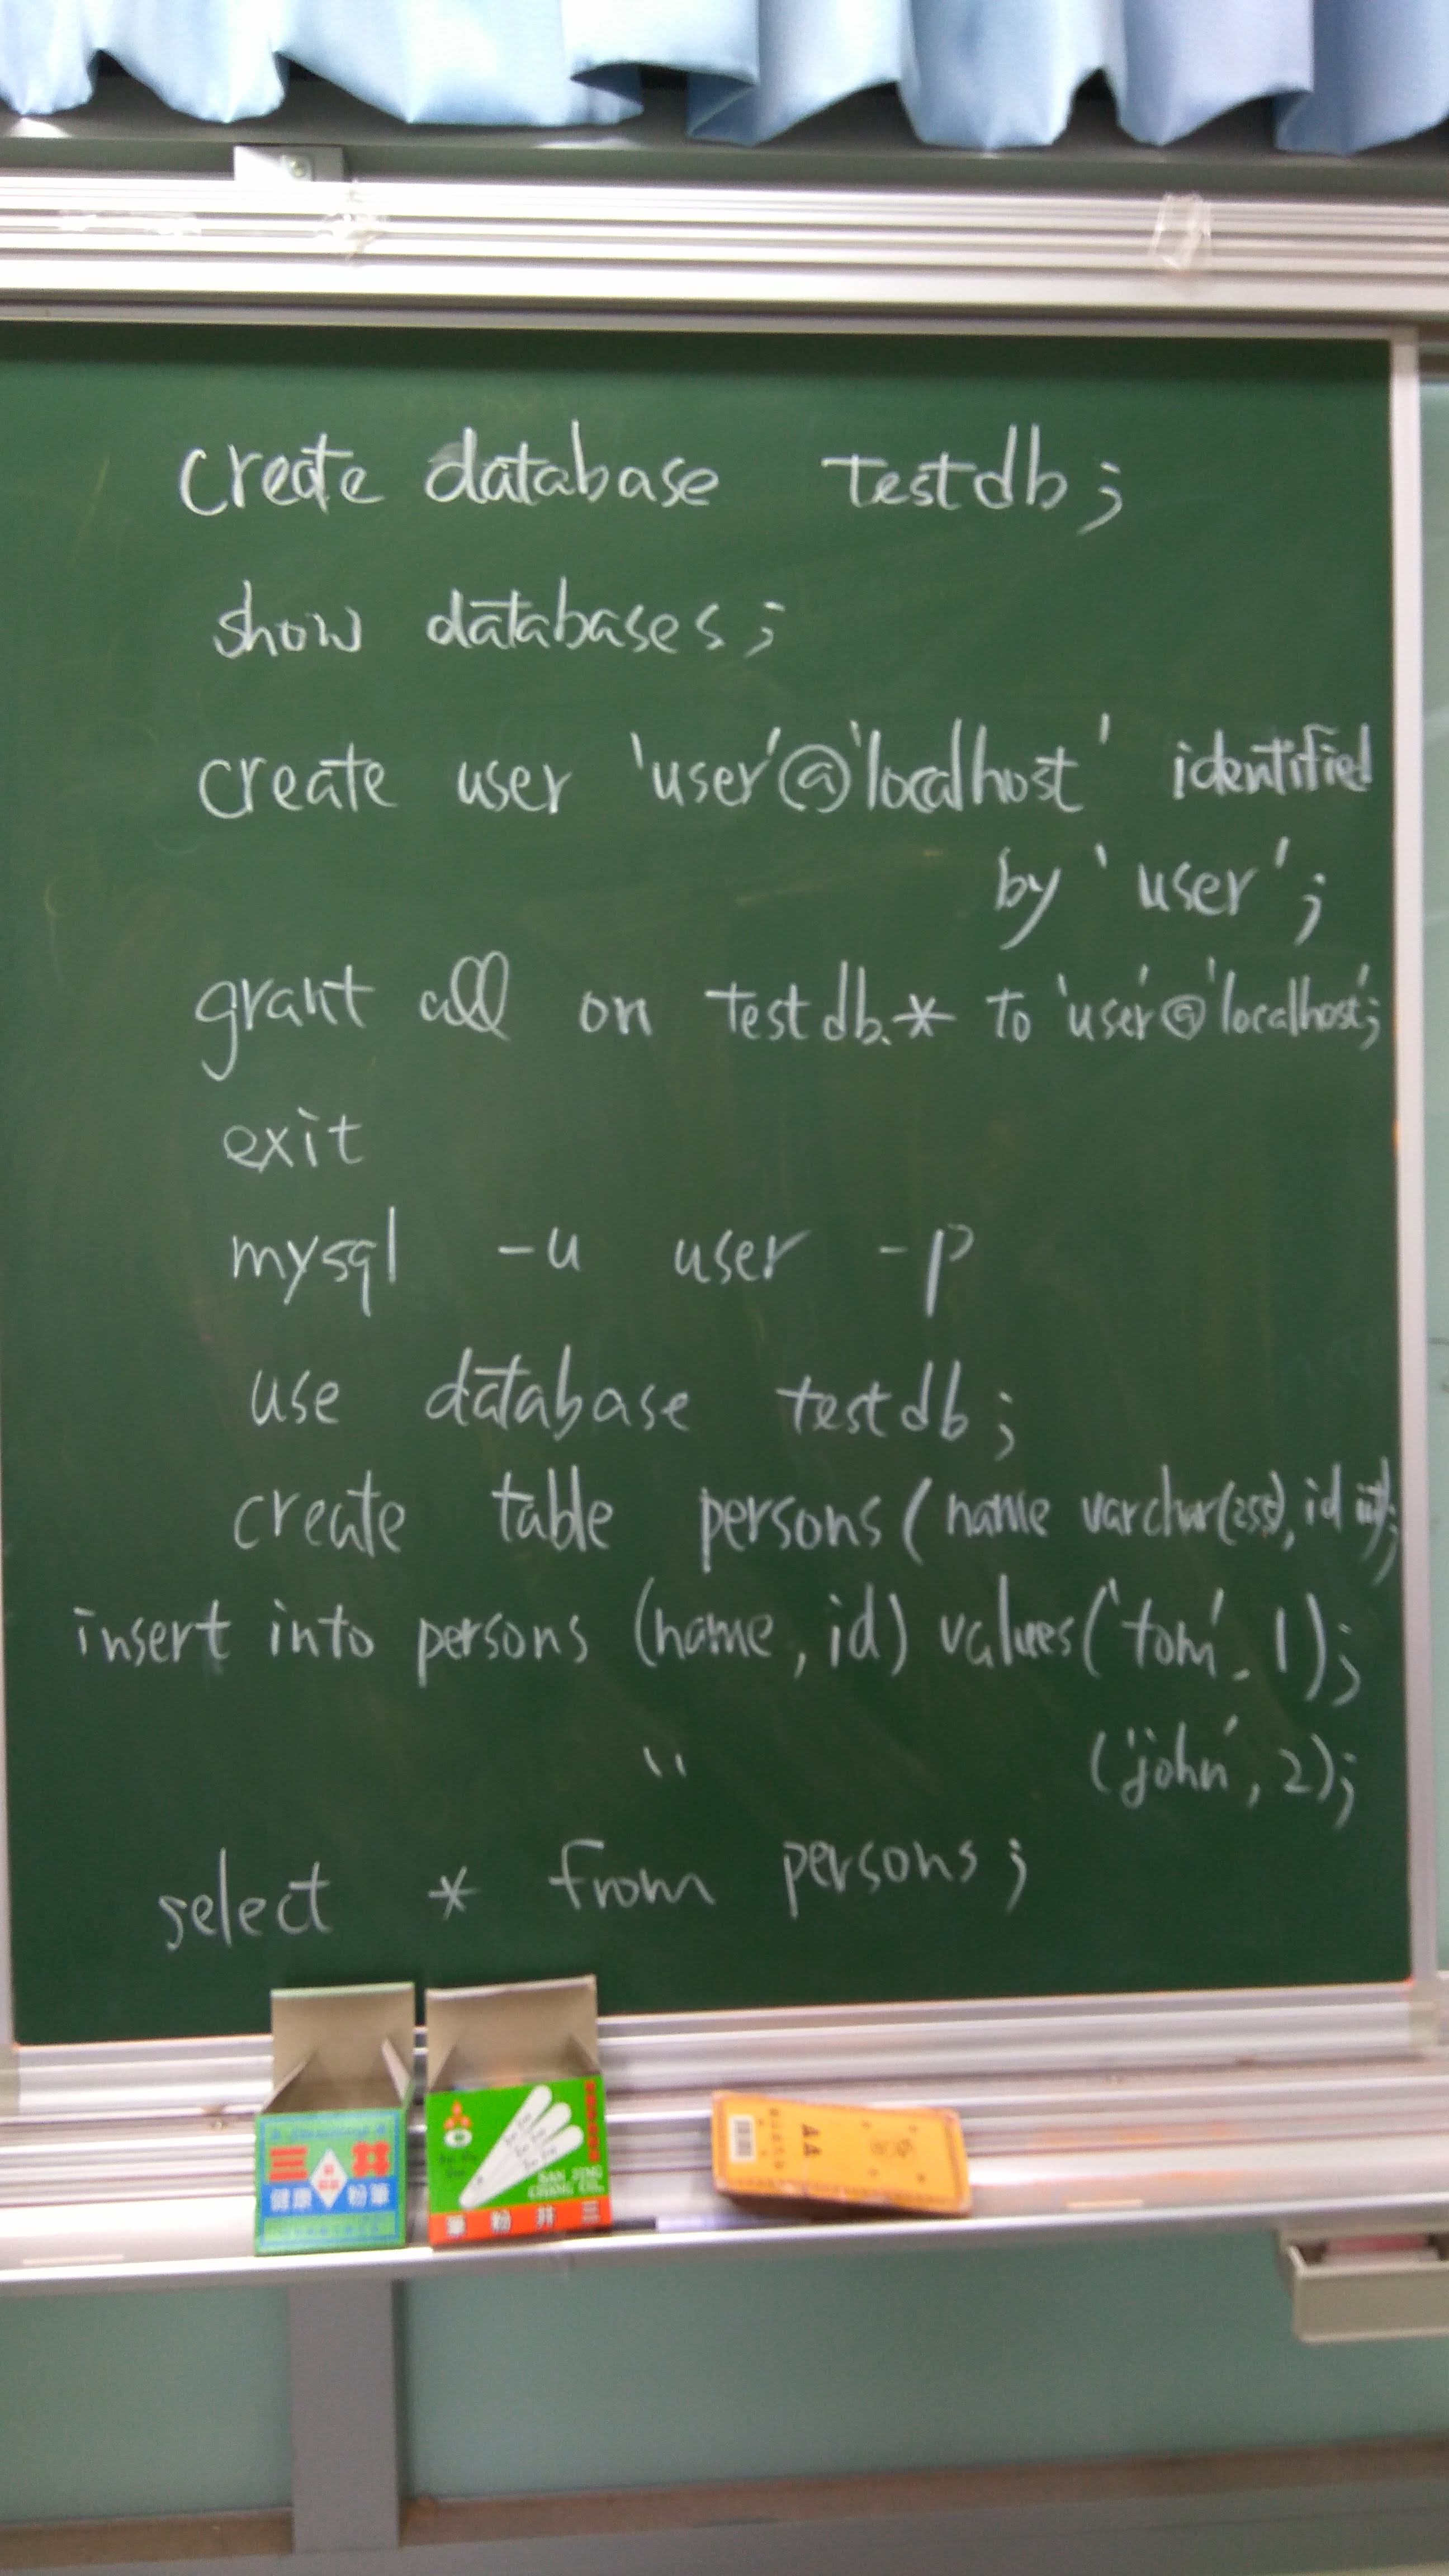 create database testdb;
show databases;
create user 'user'@'localhost' identified
by 'user';
grant all on testdb.* to 'user'@'localhost';
exit
mysql -u user -p
use database testdb;
create table persons (name varchar(255), id int);
insert into persons (name, id) values ('tom', 1);
" ('john', 2);
select * from persons;
三井
健康粉筆
SAN JING
筆粉井三
AA